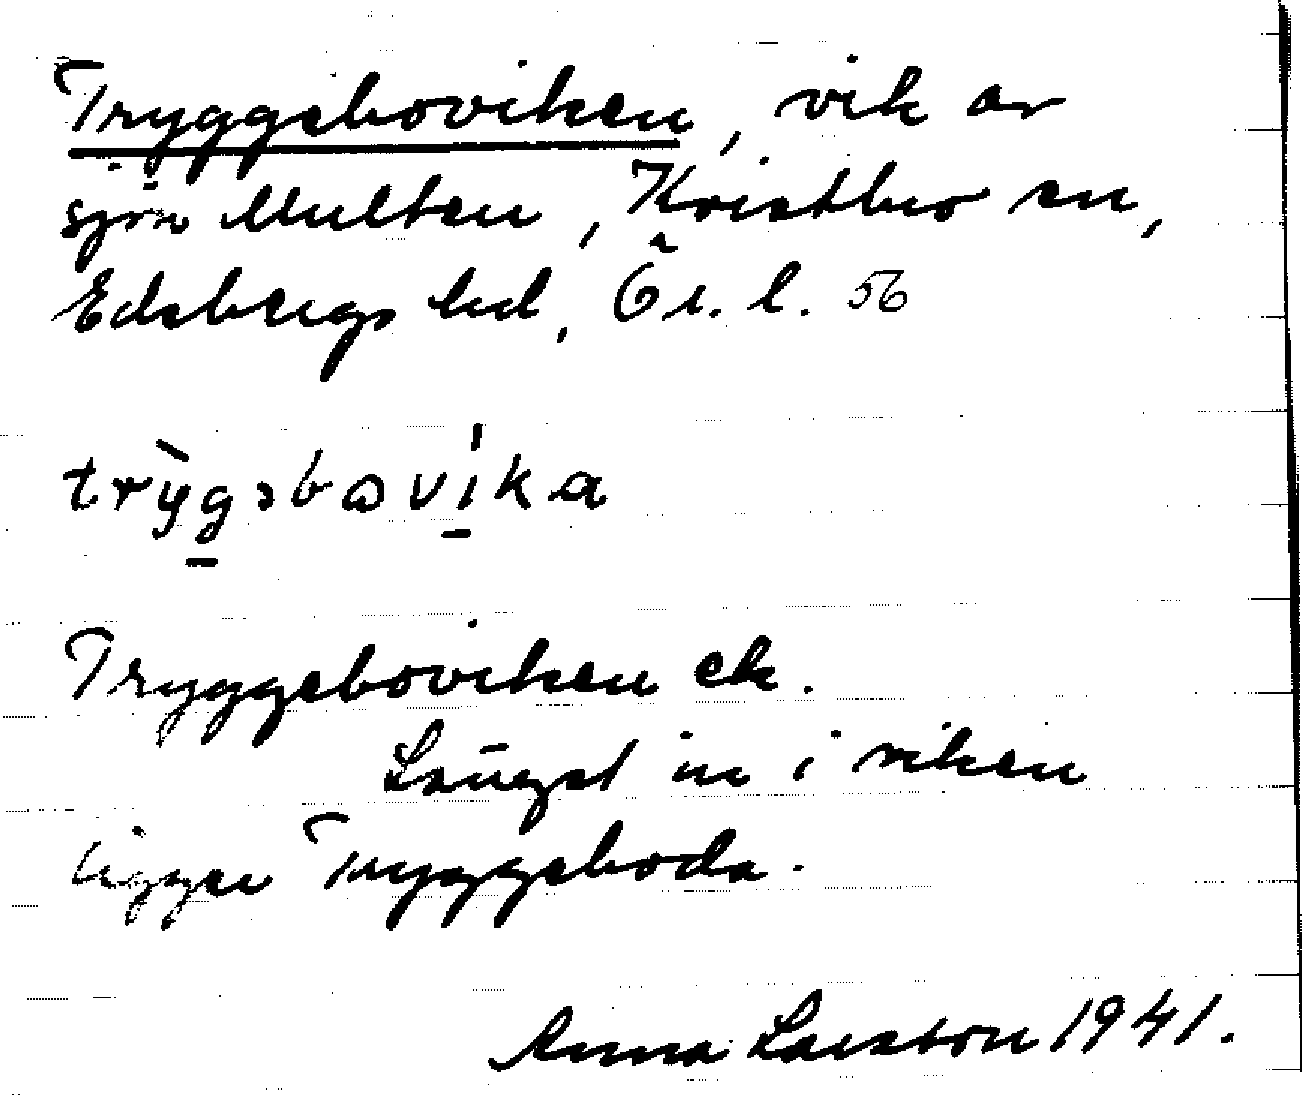 Tryggeboviken, vik av
sjön Multen, Kvistbro sn,
Edsbergs hd, Ör. l. 56
trỳgəbωvíka
Tryggeboviken ek.
Längst in i viken
ligger Tryggeboda.
Anna Larsson 1941.